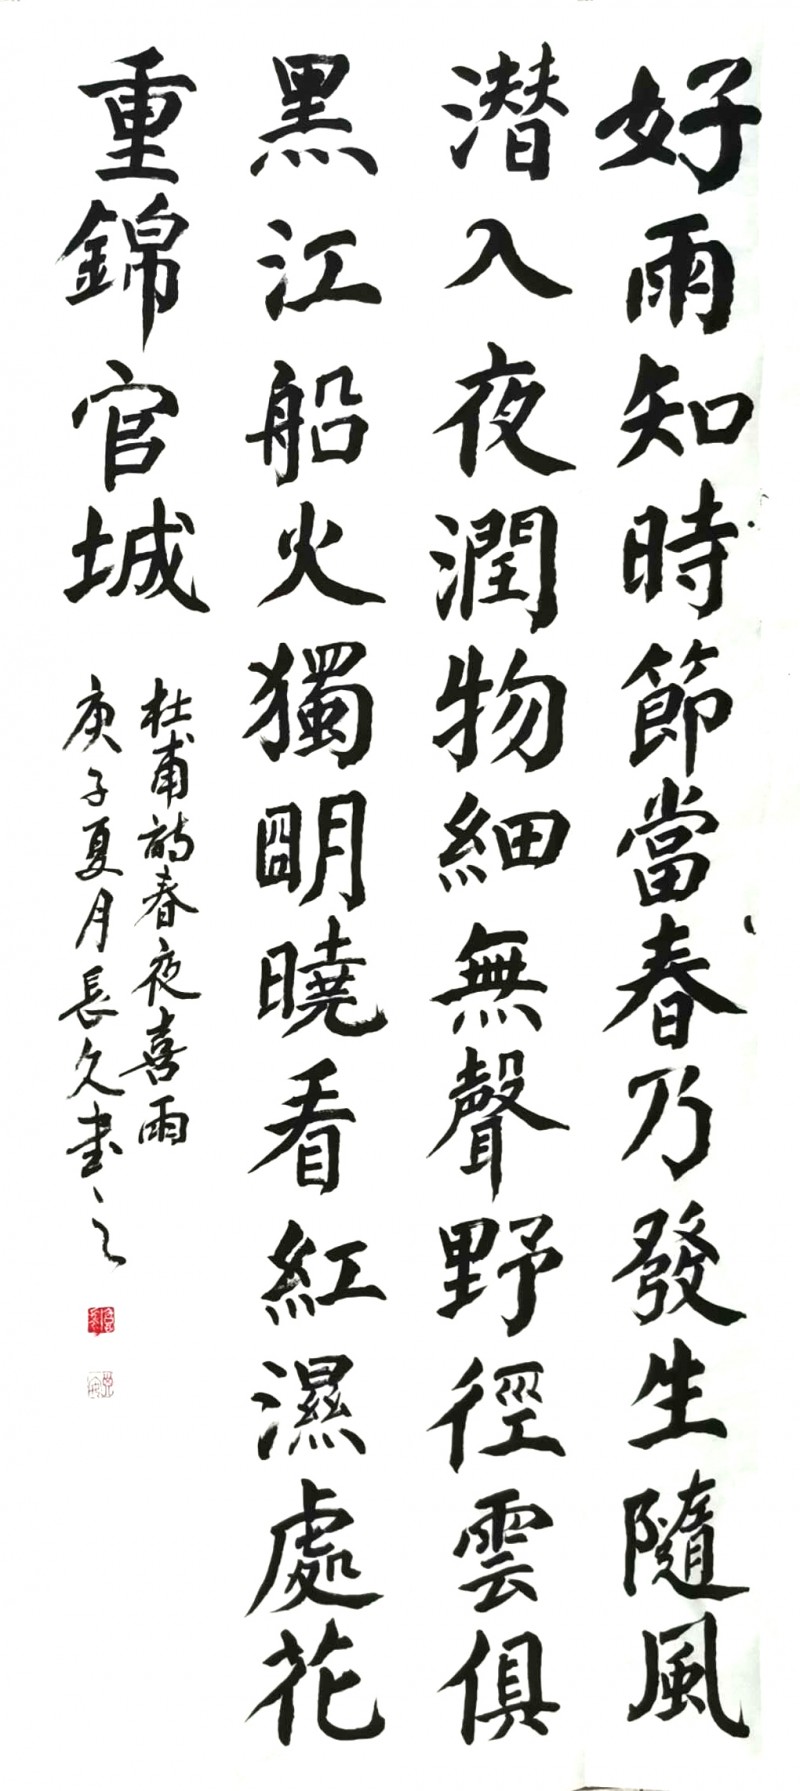 好雨知時節當春乃發生隨風
潛入夜潤物細無聲野徑雲俱
黑江船火獨朙曉看紅濕處花
重錦官城
杜甫詩春夜喜雨
庚子夏月長久書之